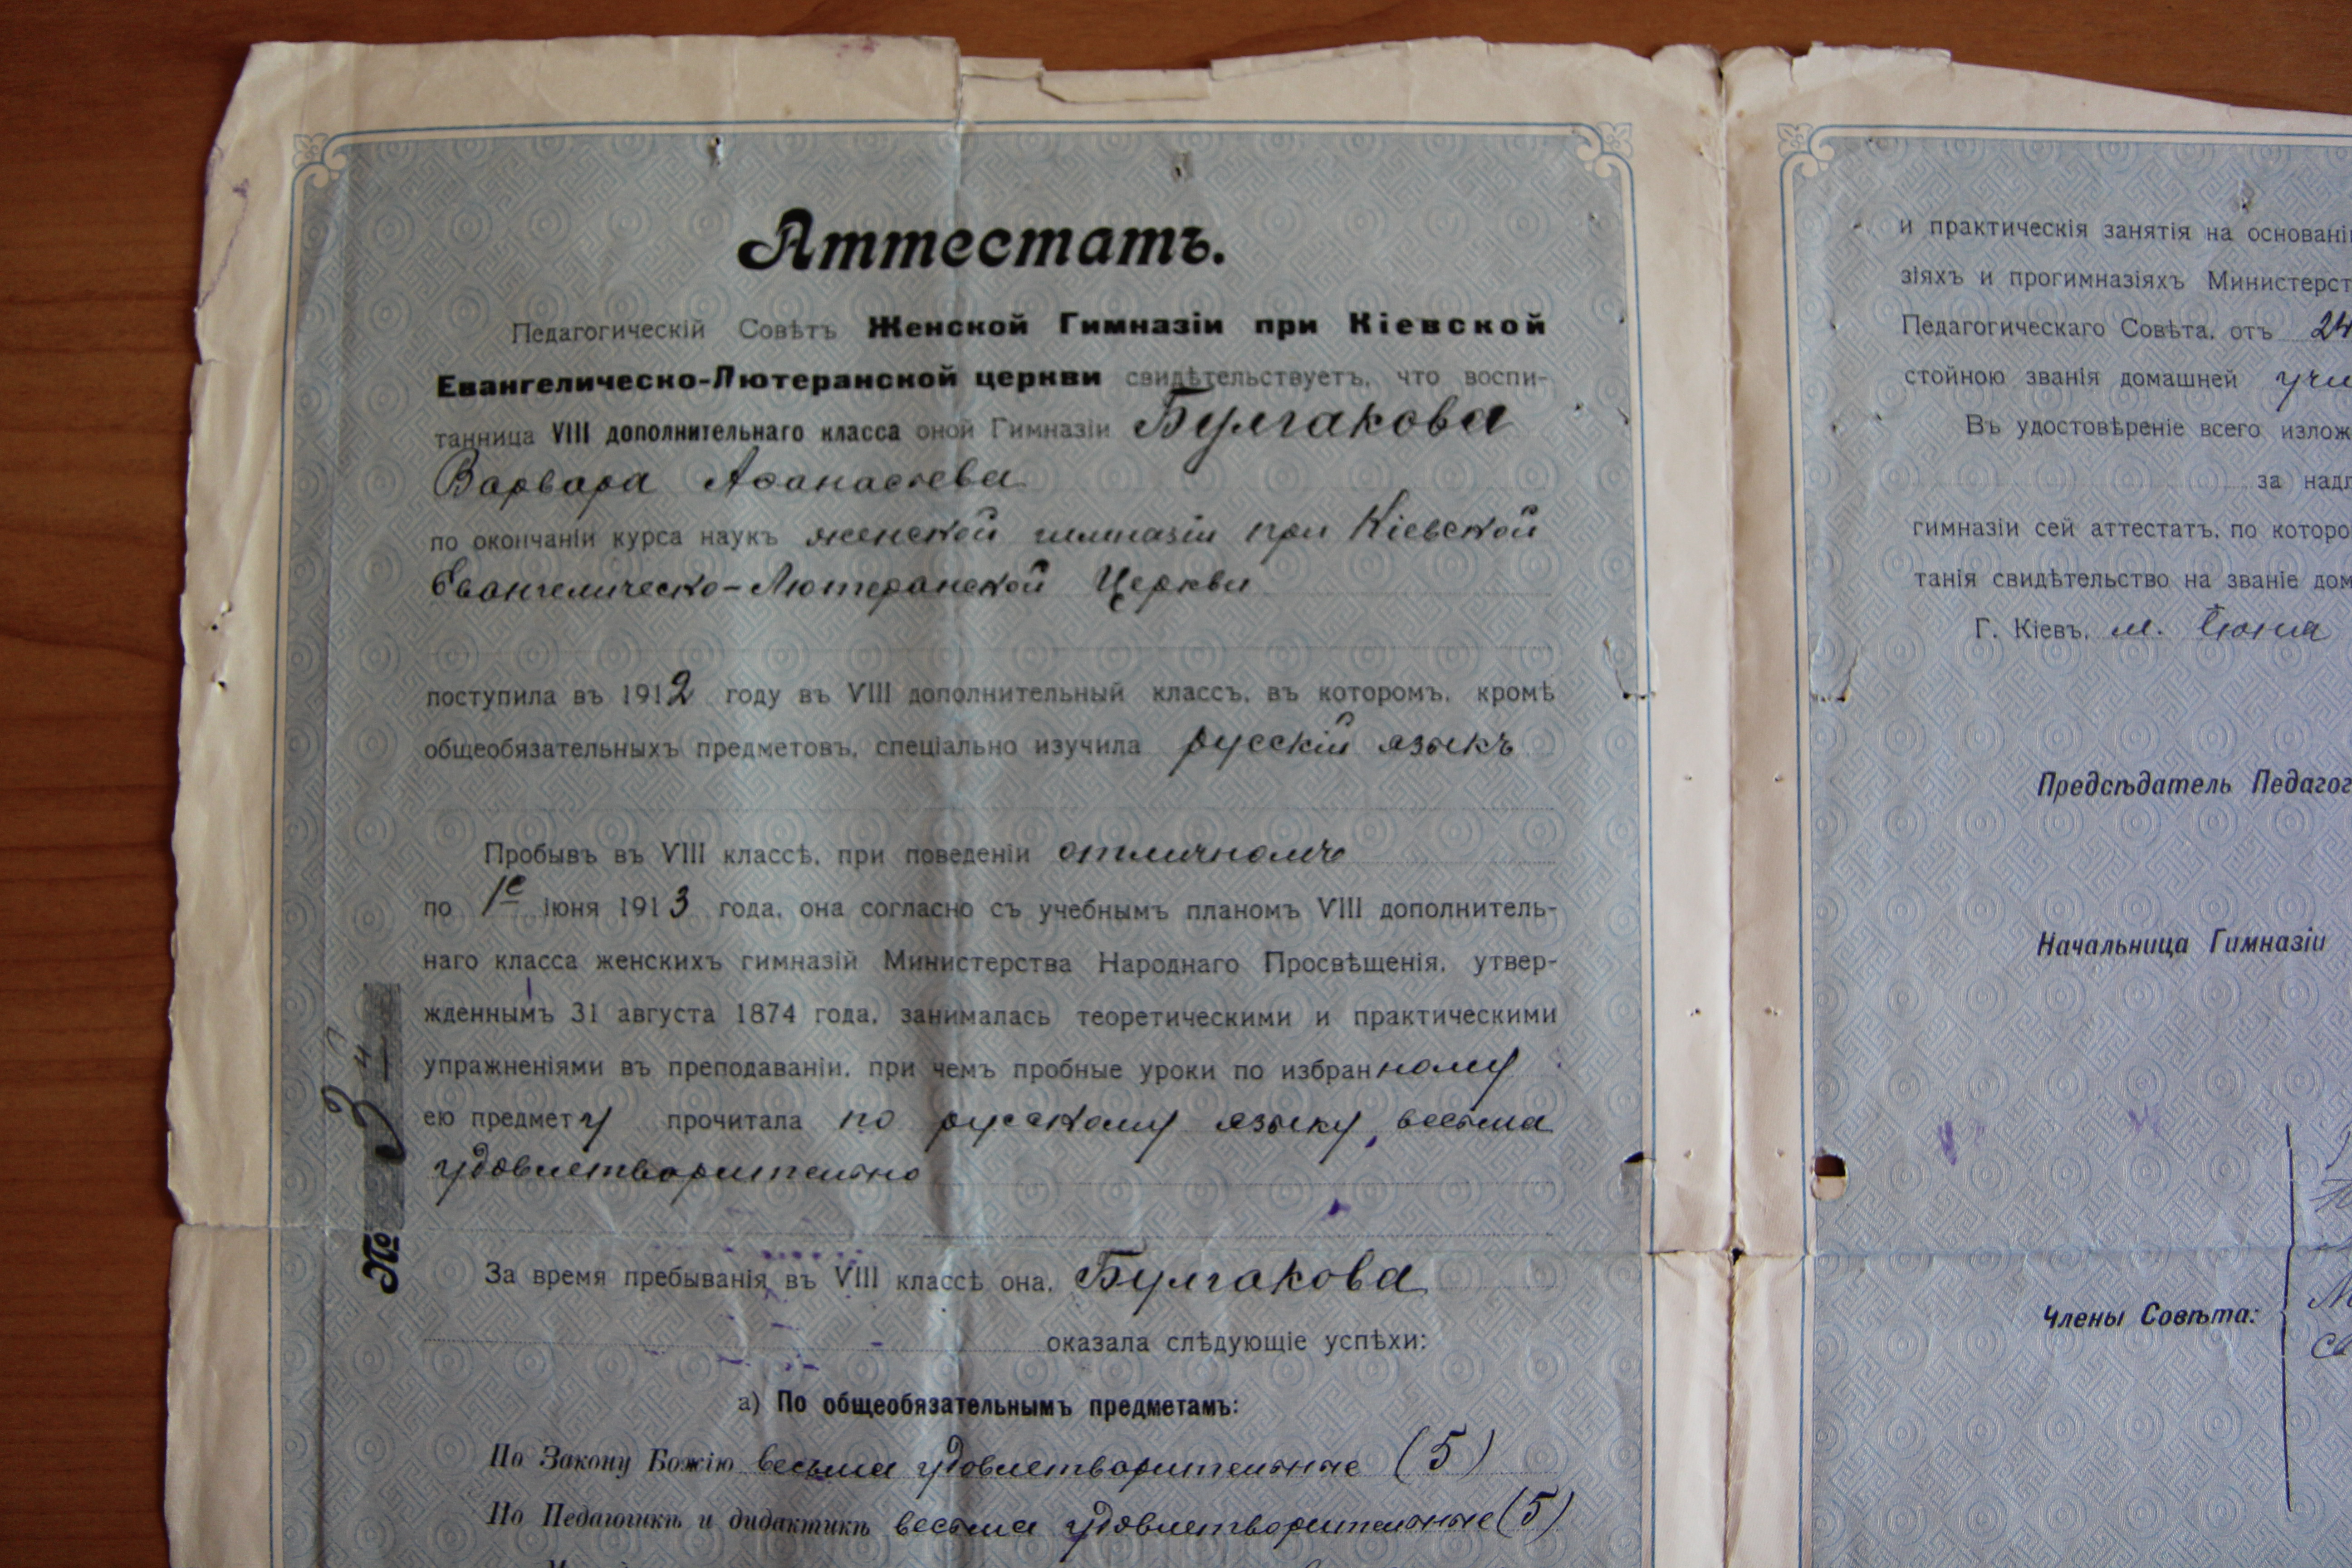 Аттестатъ.
Педагогическій Совѣтъ Женской Гимназіи при Кіевской
Евангелическо-Лютеранской церкви свидѣтельствуетъ, что воспи-
танница VIII дополнительнаго класса оной Гимназіи Булгакова
Варвара Афанасьева
по окончаніи курса наукъ женской гимназіи при Кіевской
Евангелическо-Лютеранской Церкви
поступила въ 1912 году въ VIII дополнительный классъ, въ которомъ, кромѣ
общеобязательныхъ предметовъ, спеціально изучила русскій языкъ
Пробывъ въ VIII классѣ, при поведеніи отличномъ
по 1е іюня 1913 года, она согласно съ учебнымъ планомъ VIII дополнитель-
наго класса женскихъ гимназій Министерства Народнаго Просвѣщенія, утвер-
жденнымъ 31 августа 1874 года, занималась теоретическими и практическими
упражненіями въ преподаваніи, при чемъ пробные уроки по избранному
ею предмету прочитала по русскому языку, весьма
удовлетворительно
За время пребыванія въ VIII классѣ она, Булгакова
оказала слѣдующіе успѣхи:
а) По общеобязательнымъ предметамъ:
По Закону Божію весьма удовлетворительные (5)
По Педагогикѣ и дидактикѣ весьма удовлетворительные (5)
№ 3
и практическія занятія на основані
зіяхъ и прогимназіяхъ Министерст
Педагогическаго Совѣта, отъ 24
стойною званія домашней учи
Въ удостовѣреніе всего излож
за надл
гимназіи сей аттестатъ, по которо
танія свидѣтельство на званіе дом
Г. Кіевъ, м. Іюня
Предсѣдатель Педагог
Начальница Гимназіи
Члены Совѣта: